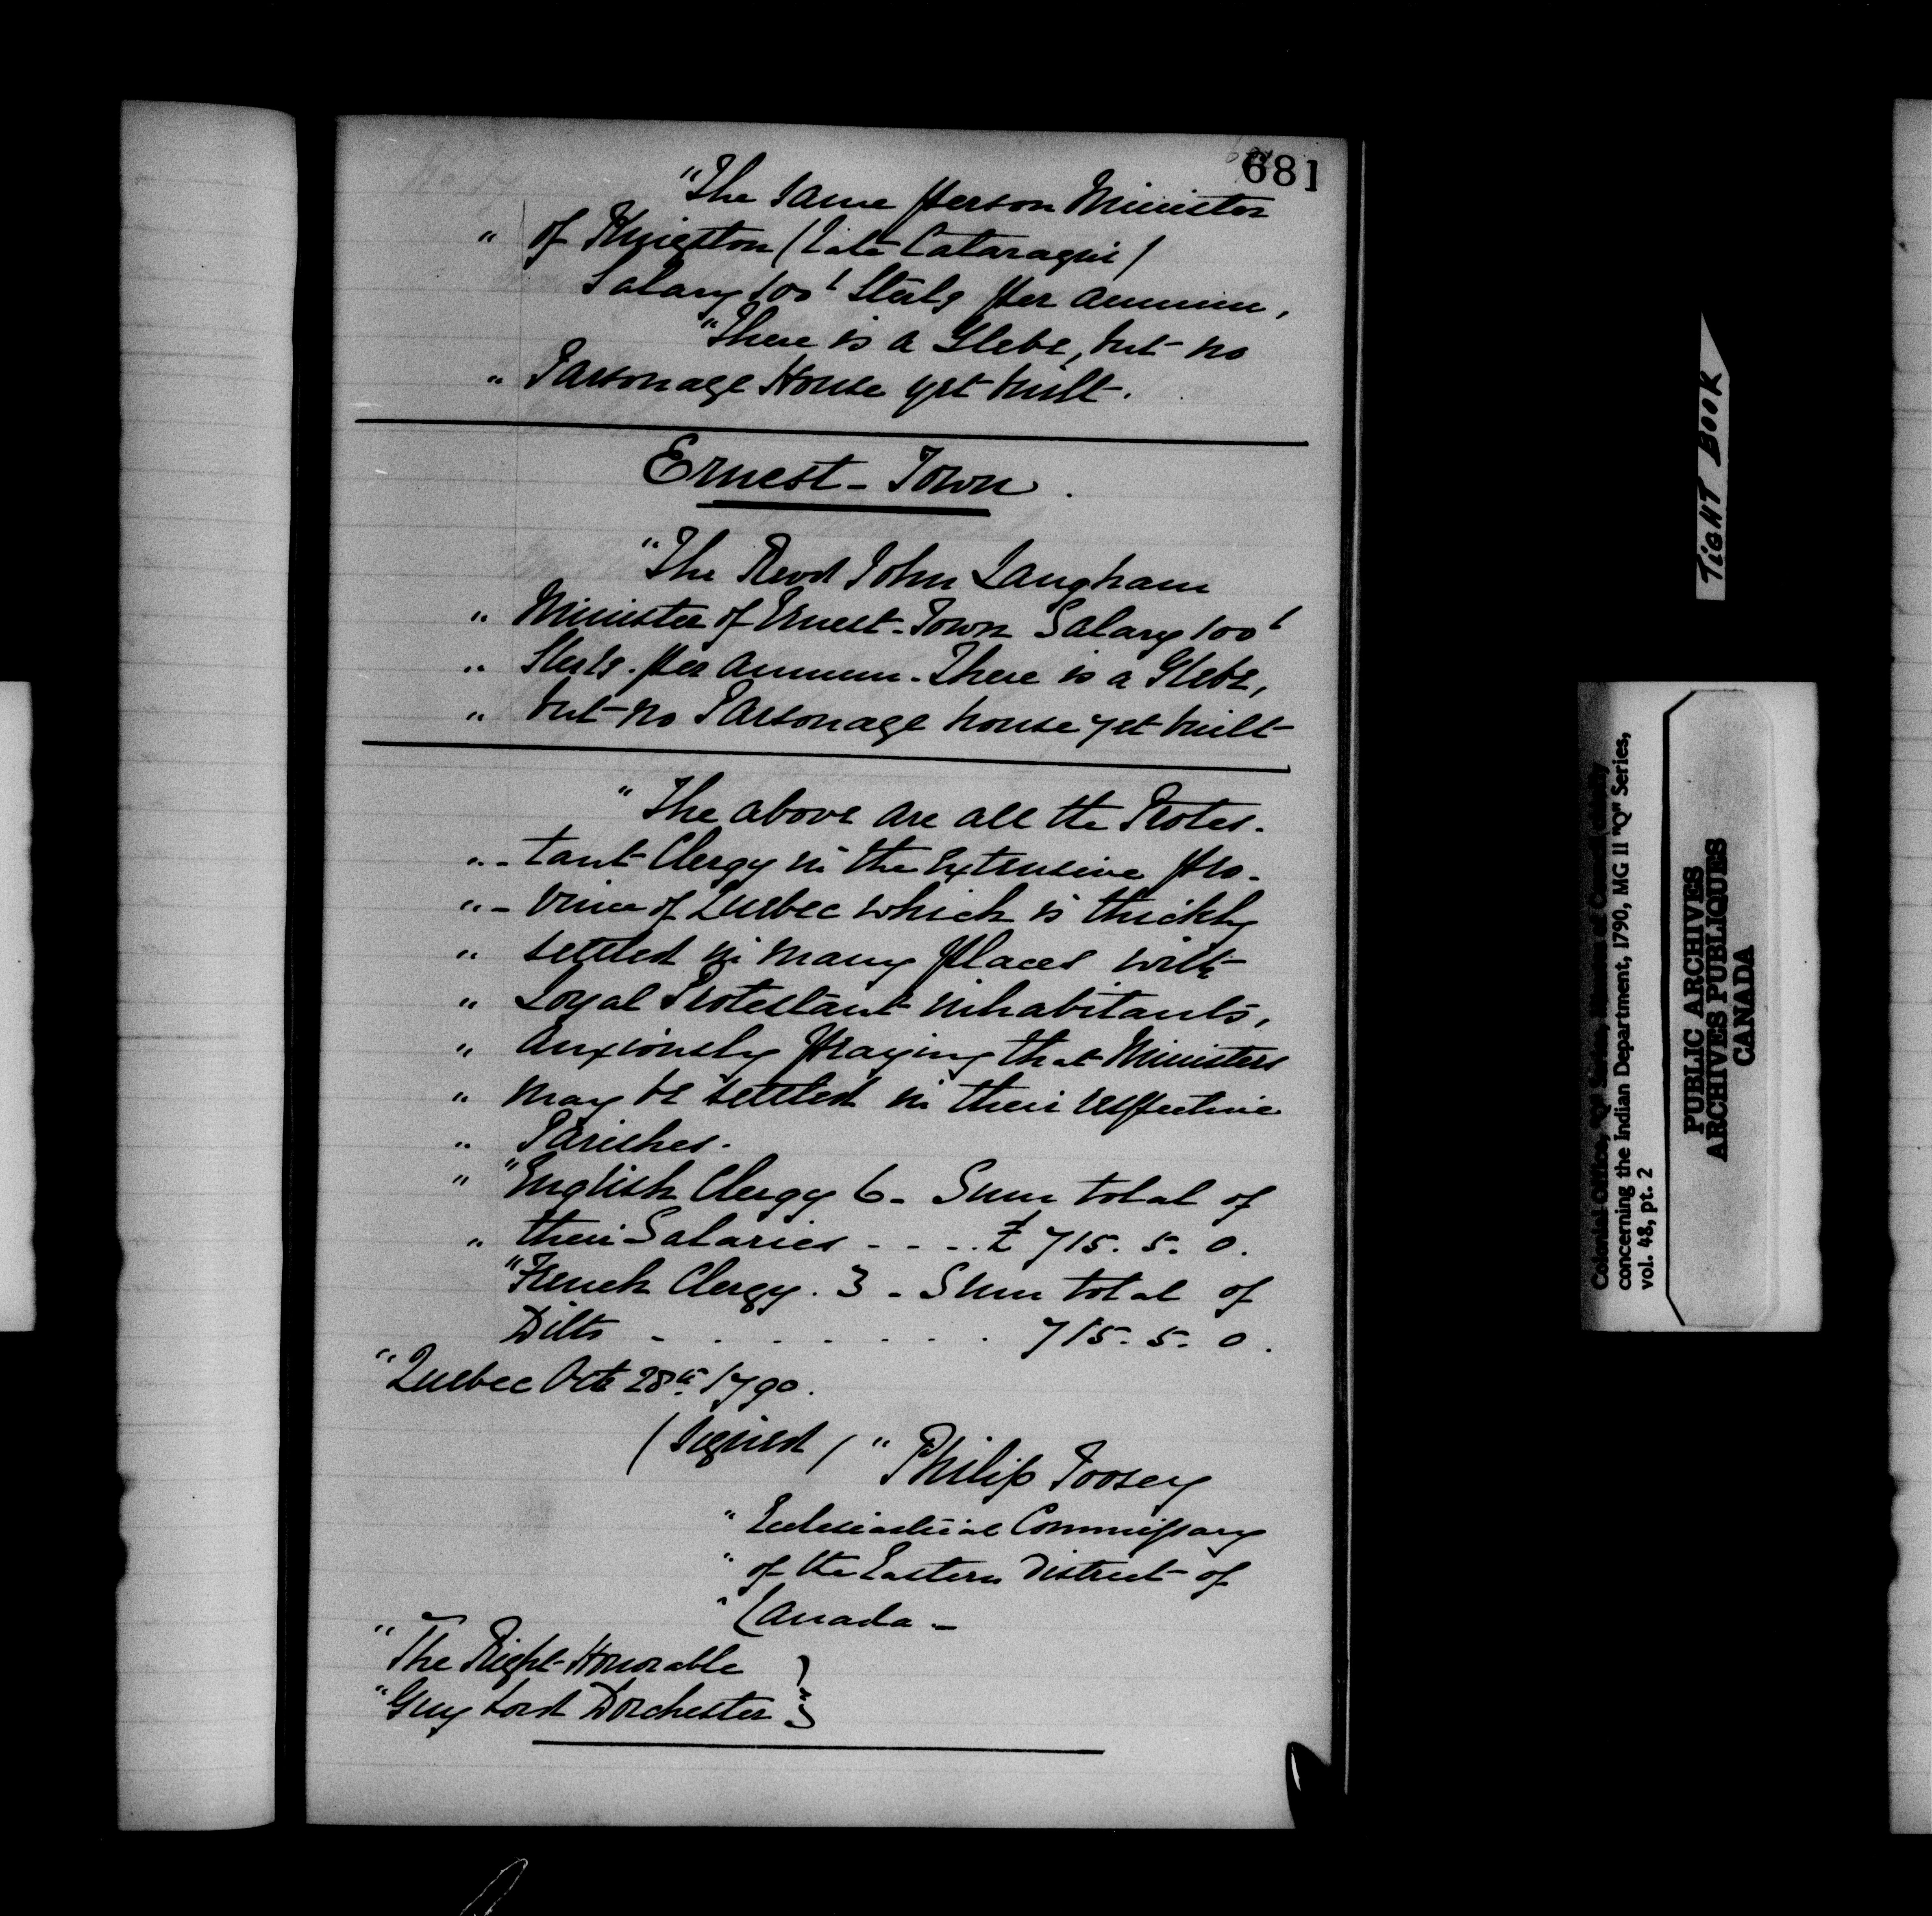 681
"The same person Minister
" of Kingston (Late Cataraqui)
Salary 100£ Sterlg per annum,
"There is a Glebe, but no
" Parsonage House yet built.
Ernest-Town.
"The Revd John Langham
" Minister of Ernest-Town Salary 100£
" Sterlg. per annum. There is a Glebe,
" but no Parsonage house yet built
"The above are all the Protes-
"-tant Clergy in the extensive pro-
"-vince of Quebec which is thickly
" settled in many places with
" Loyal Protestant inhabitants,
" anxiously praying that Ministers
" may be settled in their respective
" Parishes.
" "English Clergy 6 - Sum total of
" their Salaries - - - £ 715. 5. 0.
"French Clergy. 3 - Sum total of
Ditto - . . . . . . . 715. 5. 0.
"Quebec Oct 28th 1790.
(Signed) "Philip Toosey
" Ecclesiastical Commissary
" of the Eastern District of
" Canada -
"The Right Honorable
"Guy Lord Dorchester }
TIGHT BOOK
Colonial Office, "Q" Series,
concerning the Indian Department, 1790, MG 11 "Q" Series,
vol. 48, pt. 2
PUBLIC ARCHIVES
ARCHIVES PUBLIQUES
CANADA